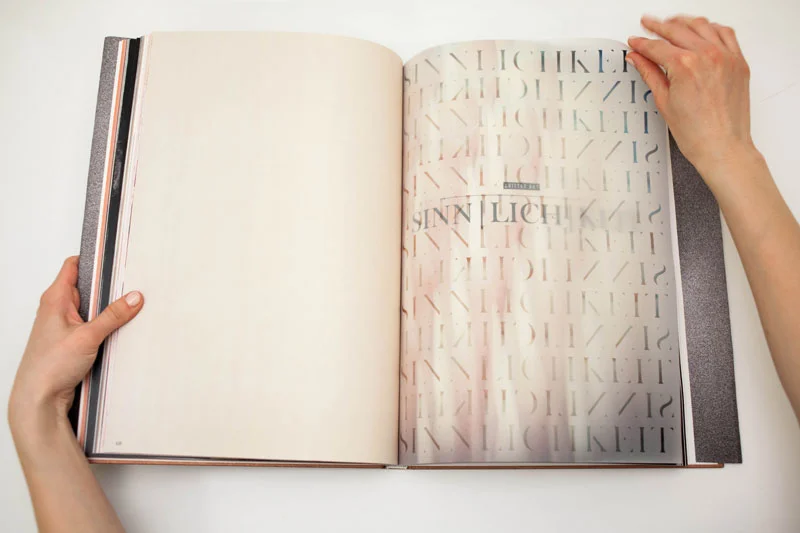 SINNLICHKEI
SINNLICHKEIT
SINNLICHKEIT
SINNLICHKEIT
SINNLICHKEIT
SINN|LICH
SINNLICHKEIT
SINNLICHKEIT
SINNLICHKEIT
SINNLICHKEIT
SINNLICHKEIT
SINNLICHKEIT
SINNLICHKEIT